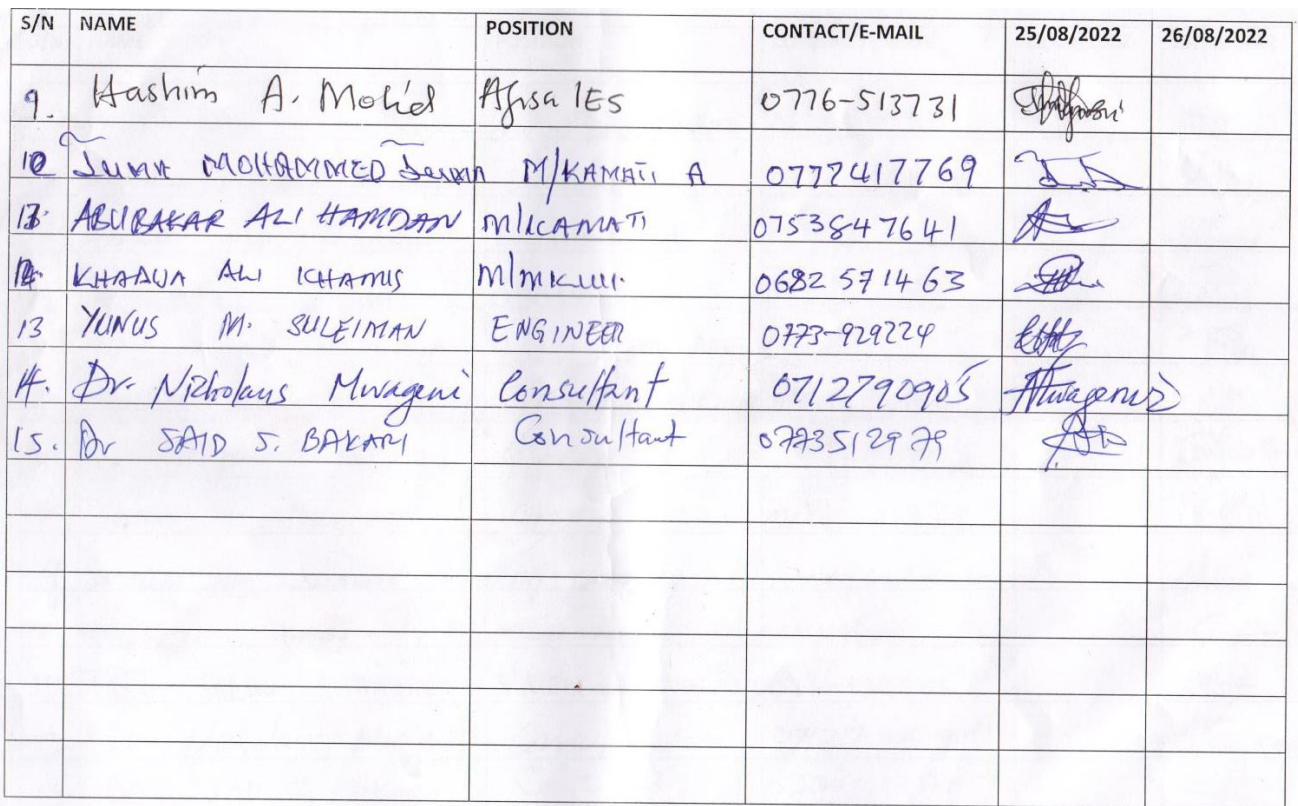 S/N NAME POSITION CONTACT/E-MAIL 25/08/2022 26/08/2022
9. Hashim A. Mohd Afisa IES 0776-513731
10 Juma MOHAMMED Juma M/KAMATI A 0777417769
ABUBAKAR ALI HAMDAN M/KAMATI 0753847641
ALI KHAMIS 0682 571463
13 YUNUS M. SULEIMAN ENGINEER 0773-929224
14. Dr. Nicholaus Mwageni Consultant 0712790905 Mwageni
15. Dr SAID S. BAKARI Consultant 0773512979